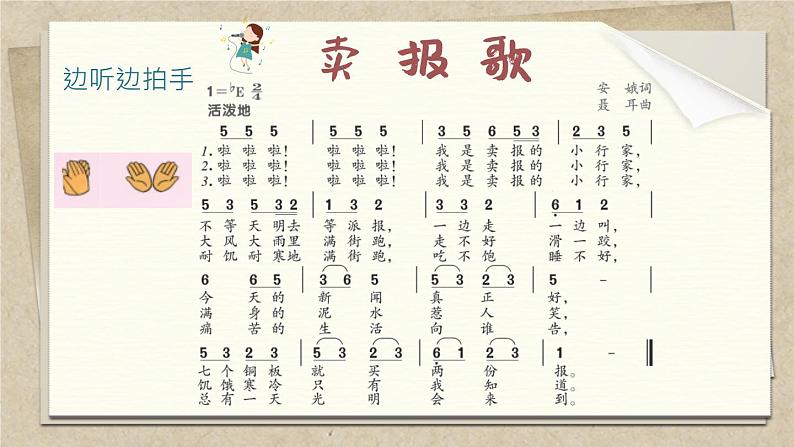 边听边拍手
卖 报 歌
1=♭E 2/4
活泼地
安 娥词
聂 耳曲
5 5 5 | 5 5 5 | 3 5 6 5 3 | 2 3 5 |
1. 啦 啦 啦! 啦 啦 啦! 我 是 卖 报 的 小 行 家,
2. 啦 啦 啦! 啦 啦 啦! 我 是 卖 报 的 小 行 家,
3. 啦 啦 啦! 啦 啦 啦! 我 是 卖 报 的 小 行 家,
5 3 5 3 2 | 1 3 2 | 3 3 2 | 6̣ 1 2 |
不 等 天 明去 等 派 报, 一 边 走 一 边 叫,
大 风 大 雨里 满 街 跑, 走 不 好 滑 一 跤,
耐 饥 耐 寒地 满 街 跑, 吃 不 饱 睡 不 好,
6 6 5 | 3 6 5 | 5 3 2 3 | 5 - |
今 天 的 新 闻 真 正 好,
满 身 的 泥 水 惹 人 笑,
痛 苦 的 生 活 向 谁 告,
5 3 2 3 | 5 3 2 3 | 6̣ 1 2 3 | 1 - ‖
七 个 铜 板 就 买 两 份 报。
饥 饿 寒 冷 只 有 我 知 道。
总 有 一 天 光 明 会 来 到。